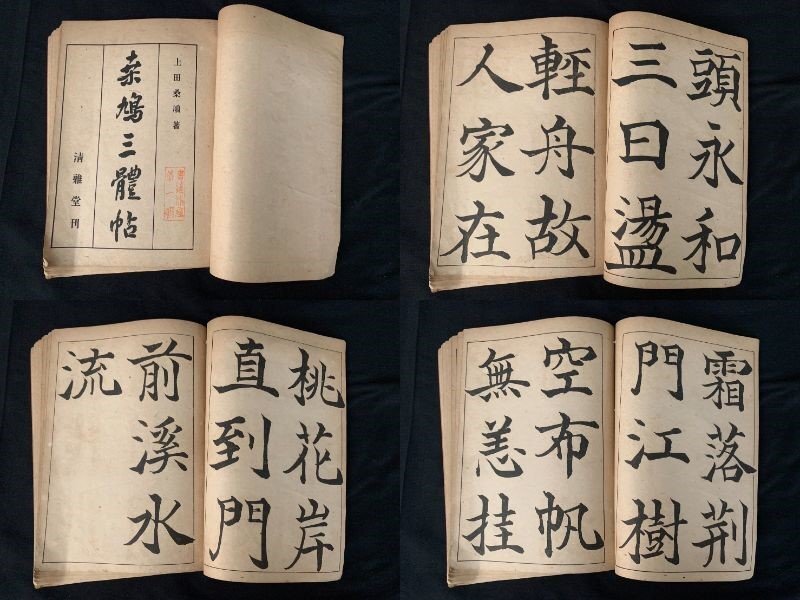 上田桑鳩著
桒鳩三體帖
清雅堂刊
頭永和
三日盪
輕舟故
人家在
桃花岸
直到門
前溪水
流
霜落荆
門江樹
空布帆
無恙挂